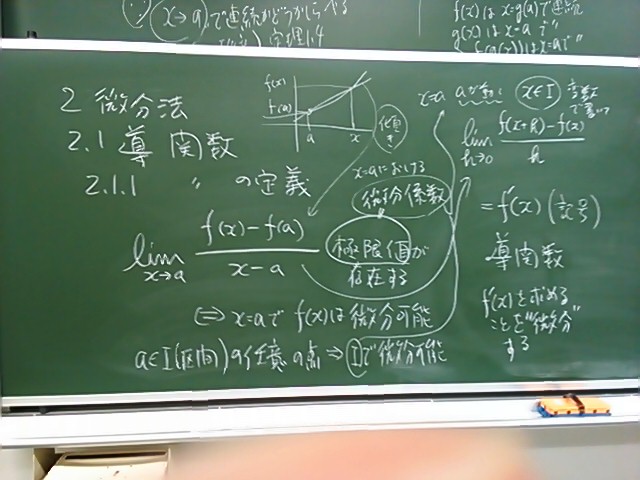 x→a で連続かどうか
定理1.4
f(x)はx=g(a)で連続
g(x)はx=aで 〃
f(g(x))はx=aで〃
2 微分法
2.1 導関数
2.1.1 〃 の定義
f(x)
f(a)
a x
傾き
lim x→a f(x)-f(a) / x-a
x=aにおける
微分係数
極限値が
存在する
⇔ x=aで f(x)は微分可能
a∈I(区間)の任意の点⇒Iで微分可能
x=a aが動く x∈I 変数
で書いて
lim h→0 f(x+h)-f(x) / h
=f'(x)(記号)
導関数
f'(x)を求める
ことを"微分"
する